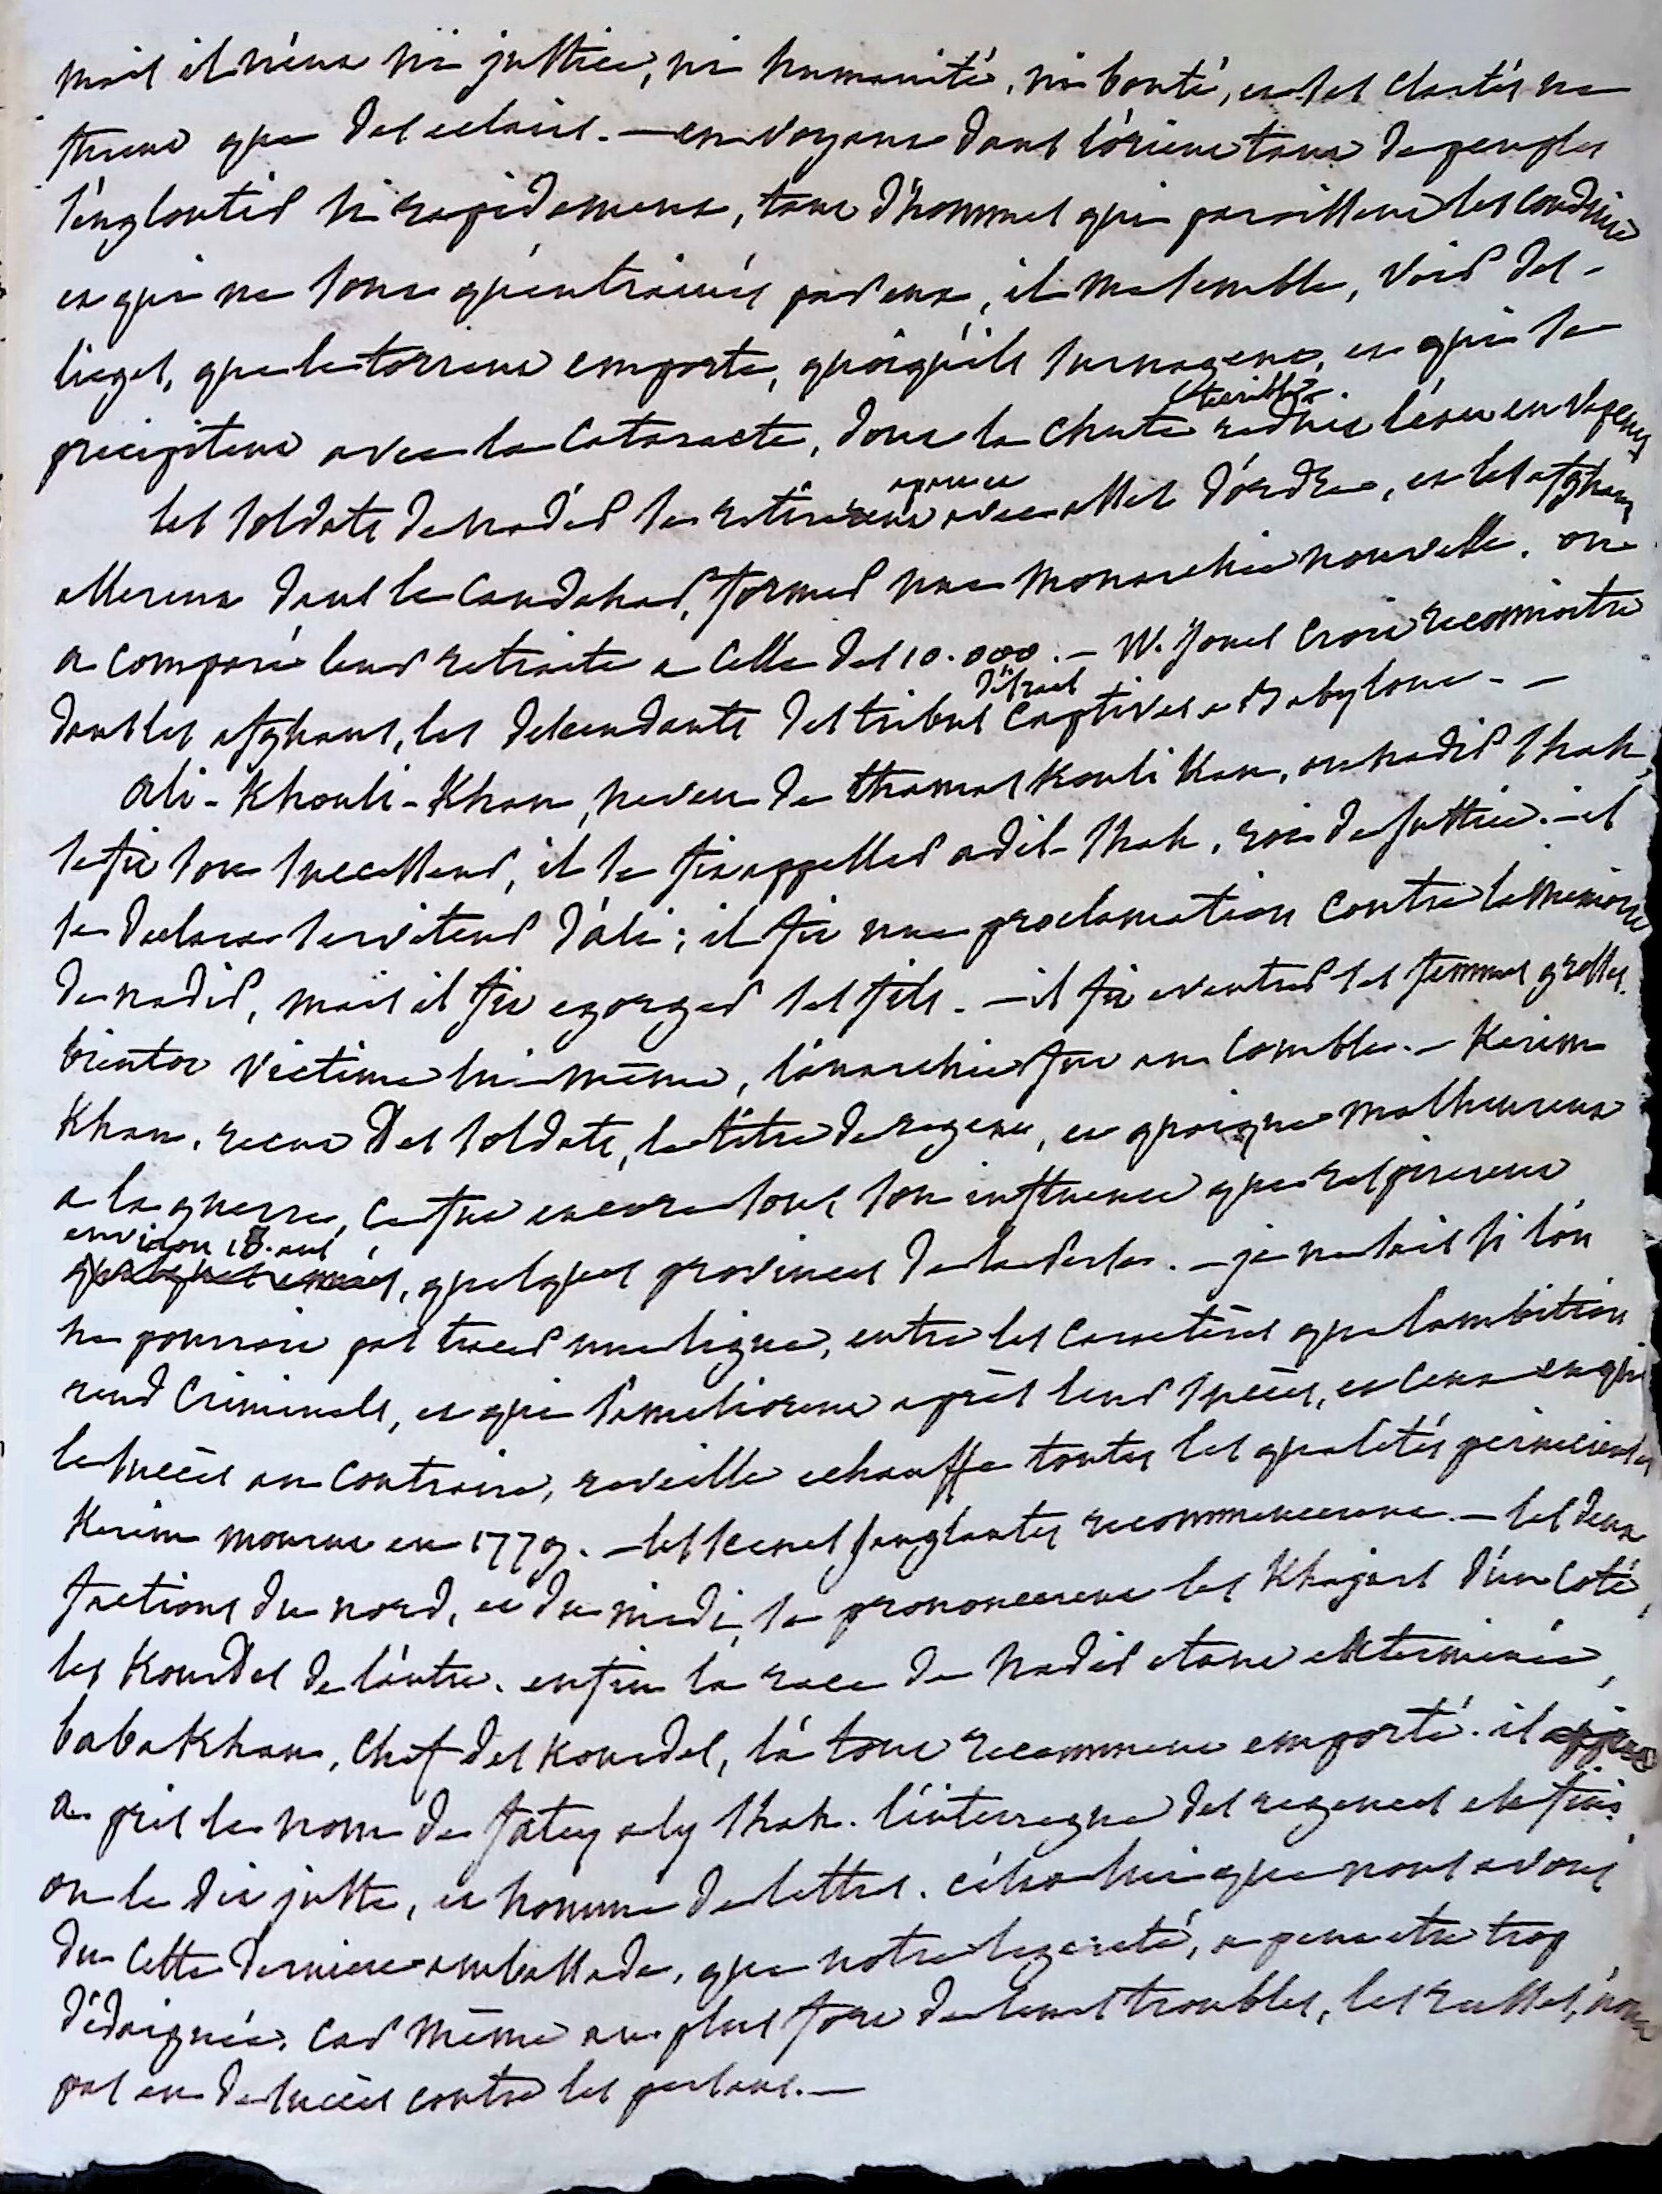 mais il n'eut ni justice, ni humanité, ni bonté, et ses clartés ne
furent que des eclairs. — en voyant dans l'orient tant de peuples
s'engloutir si rapidement, tant d'hommes qui paroissent les conduire
et qui ne sont qu'entrainés par eux, il me semble, voir des
lieges, que le torrent emporte, quoiqu'ils surnagent, et qui se
precipitent avec la cataracte, dont la chute terrible reduit l'eau en vapeurs
les soldats de nadir se retirerent apres ce avec assez d'ordre, et les afghans
allerent dans le Candahar, former une monarchie nouvelle. on
a comparé leur retraite a celle des 10.000. — W. Jones croit reconnoitre
dans les afghans, les descendants des tribus d'israel captives a Babylone. —
Ali-Khouli-Khan, neveu de thamas Kouli Kan, ou nadir shah,
se fit son successeur, il se fit appeller adil-shah, roi de justice. — il
se declara serviteur d'ali; il fit une proclamation contre la memoire
de nadir, mais il fit egorger ses fils. — il fit eventrer ses femmes grosses.
bientot victime lui-même, l'anarchie fut au comble. — Kerim
Khan, reçut des soldats, le titre de regent, et quoique malheureux
a la guerre, ce fut encore sous son influence que respirerent
environ 18. ans, quelques provinces de la perse. — je ne sais si l'on
ne pourroit pas tracer une ligne, entre les caractères que l'ambition
rend criminels, et qui s'ameliorent après leur succès, et ceux en qui
le succès au contraire, reveille echauffe toutes les qualités pernicieuses
Kerim mourut en 1779. — les scenes sanglantes recommencerent. — les deux
factions du nord, et du midi, se prononcerent les Khajars d'un coté,
les Kourdes de l'autre. enfin la race de Nadir etant exterminée,
baba Khan, chef des Kourdes, l'a tout recemment emporté. il
a pris le nom de fatey aly shah. l'interregne des regences est fini,
on le dit juste, et homme de lettres. c'est a lui que nous avons
du cette derniere ambassade, que notre legereté, a peut etre trop
dédaignée. car même au plus fort de leurs troubles, les russes, n'ont
pas eu de succès contre les persans. —